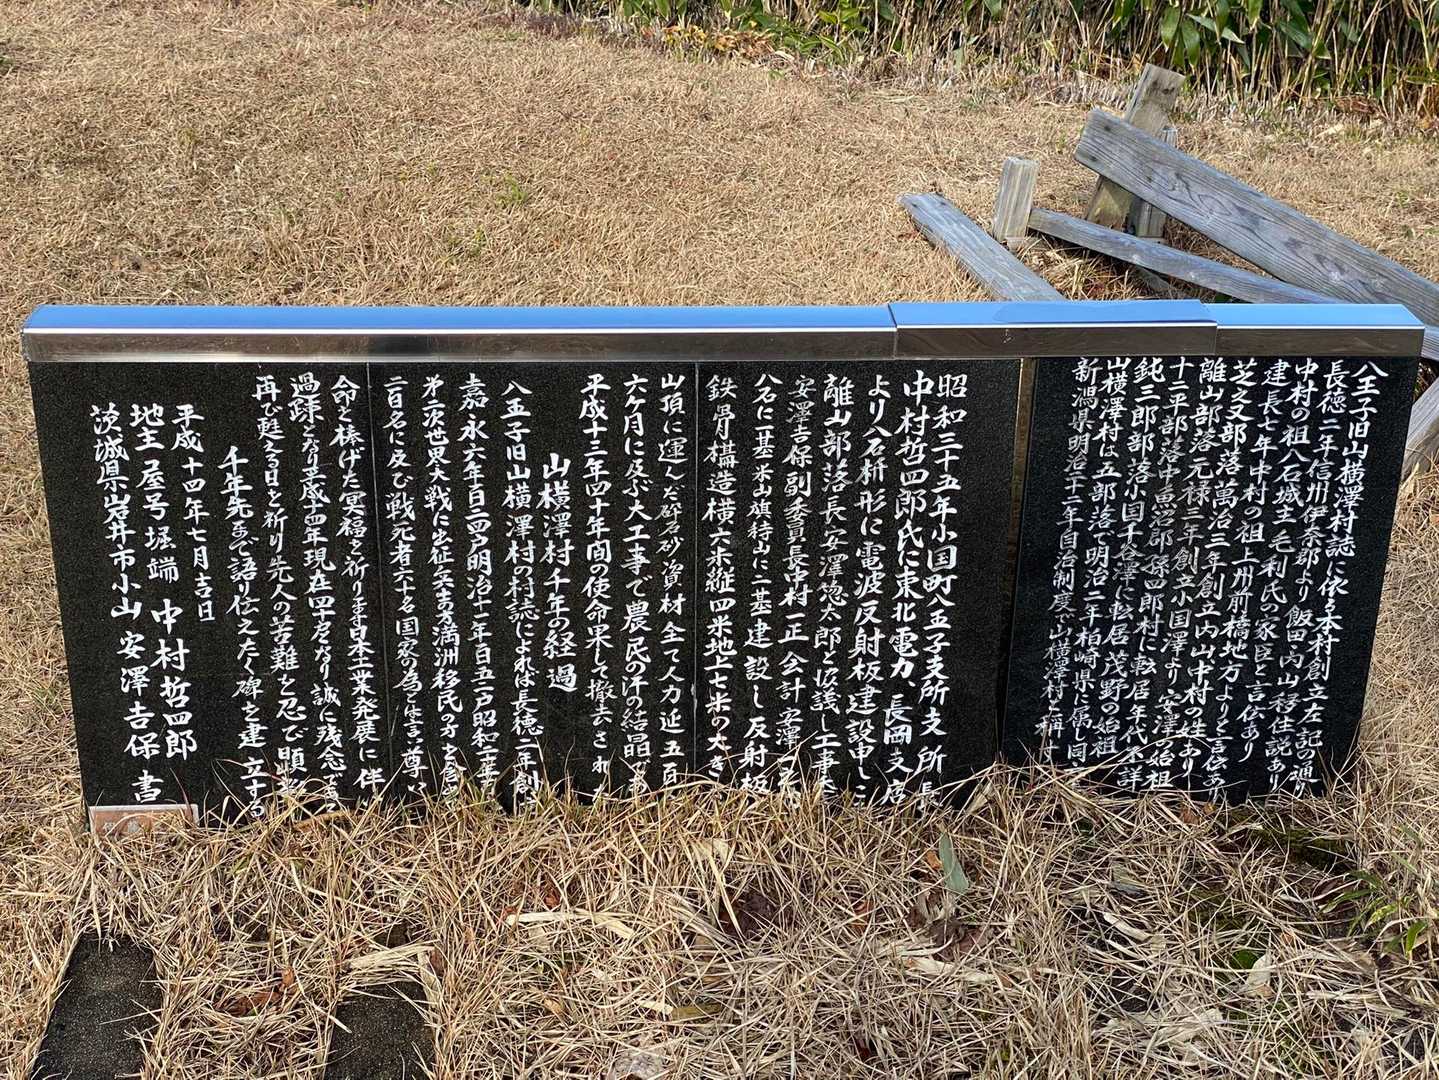 八王子旧山横澤村誌に依る本村創立左記の通り
長徳二年信州伊奈郡より飯田丙山移住説あり
中村の祖八石城主毛利氏の家臣と言伝あり
建長七年中村の祖上州前橋地方よりと言伝あり
芝之又部落萬治三年創立内山中村の姓あり
離山部落元禄三年創立小国澤より安澤の始祖
十二平部落中魚沼郡孫四郎村に転居年代不詳
鈍三郎部落小国千谷澤に転居茂野の始祖
山横澤村は五部落で明治二年柏崎県に属し同
新潟県明治十二年自治制度で山横澤村と称
昭和三十五年小国町八王子支所支所長
中村哲四郎氏に東北電力、長岡支店
より八石枡形に電波反射板建設申しこ
離山部落長安澤惣太郎と協議し工事
安澤吉保副委員長中村一正会計安澤
八石に一基米山旗持山に二基建設し反射板
鉄骨構造横六米縦四米地上七米の大き
山頂に運んだ砕石砂資材全て人力延五百
六ケ月に及ぶ大工事で農民の汗の結晶であ
平成十三年四十年間の使命果して撤去され
山横澤村千年の経過
八王子旧山横澤村の村誌によれば長徳二年創
嘉永六年百二四戸明治十一年百五一戸昭和二
第二次世界大戦に出征立
満洲移民の子を
二百名に及び戦死者六十名国家の為と
尊い
命を棒げた冥福を祈ります日本工業発展に伴
過疎となり平成十四年現在四戸となり誠に残念であ
再び甦える日を祈り先人の苦難を忍で
千年先まで語り伝えたく碑を建立する
平成十四年七月吉日
地主屋号堀端中村哲四郎
茨城県岩井市小山安澤吉保書